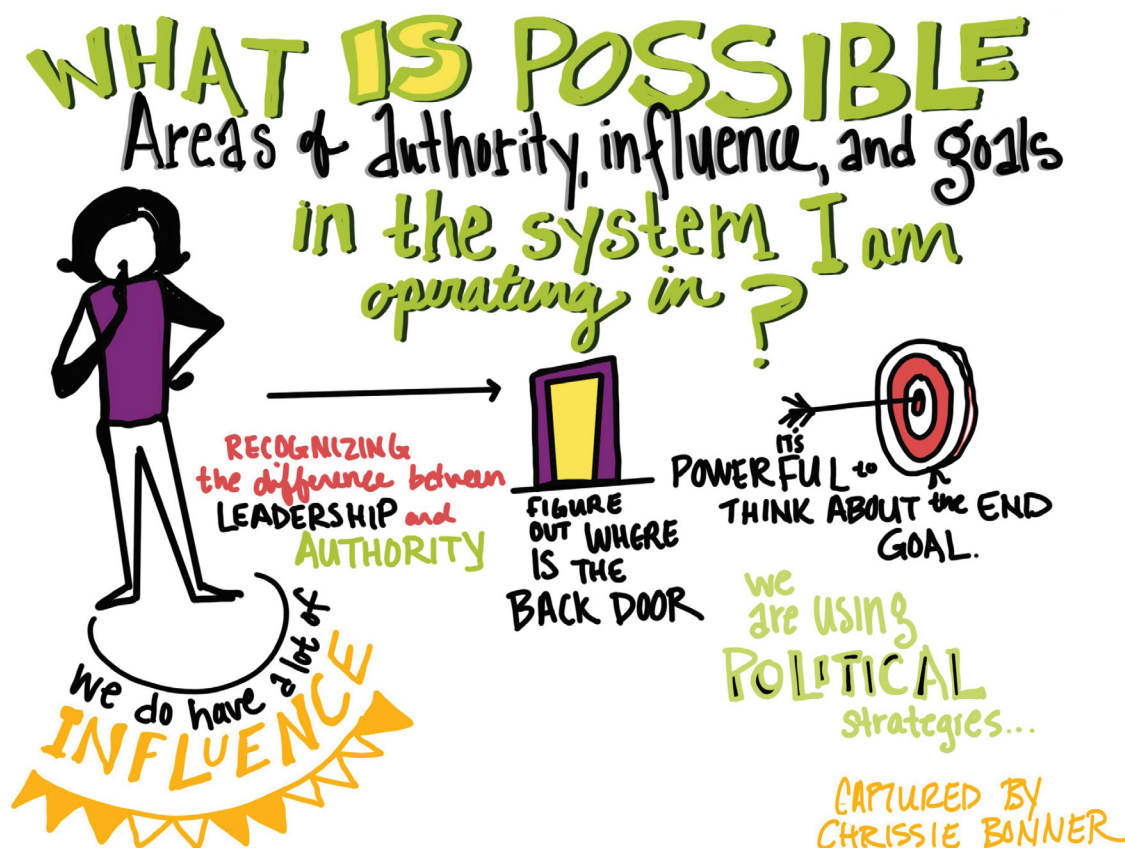 WHAT IS POSSIBLE
Areas of authority, influence, and goals
in the system I am
operating in?
RECOGNIZING
the difference between
LEADERSHIP and
AUTHORITY
FIGURE
OUT WHERE
IS THE
BACK DOOR
IT'S
POWERFUL to
THINK ABOUT the END
GOAL.
we
are USING
POLITICAL
strategies...
We do have a lot of
INFLUENCE
CAPTURED BY
CHRISSIE BONNER